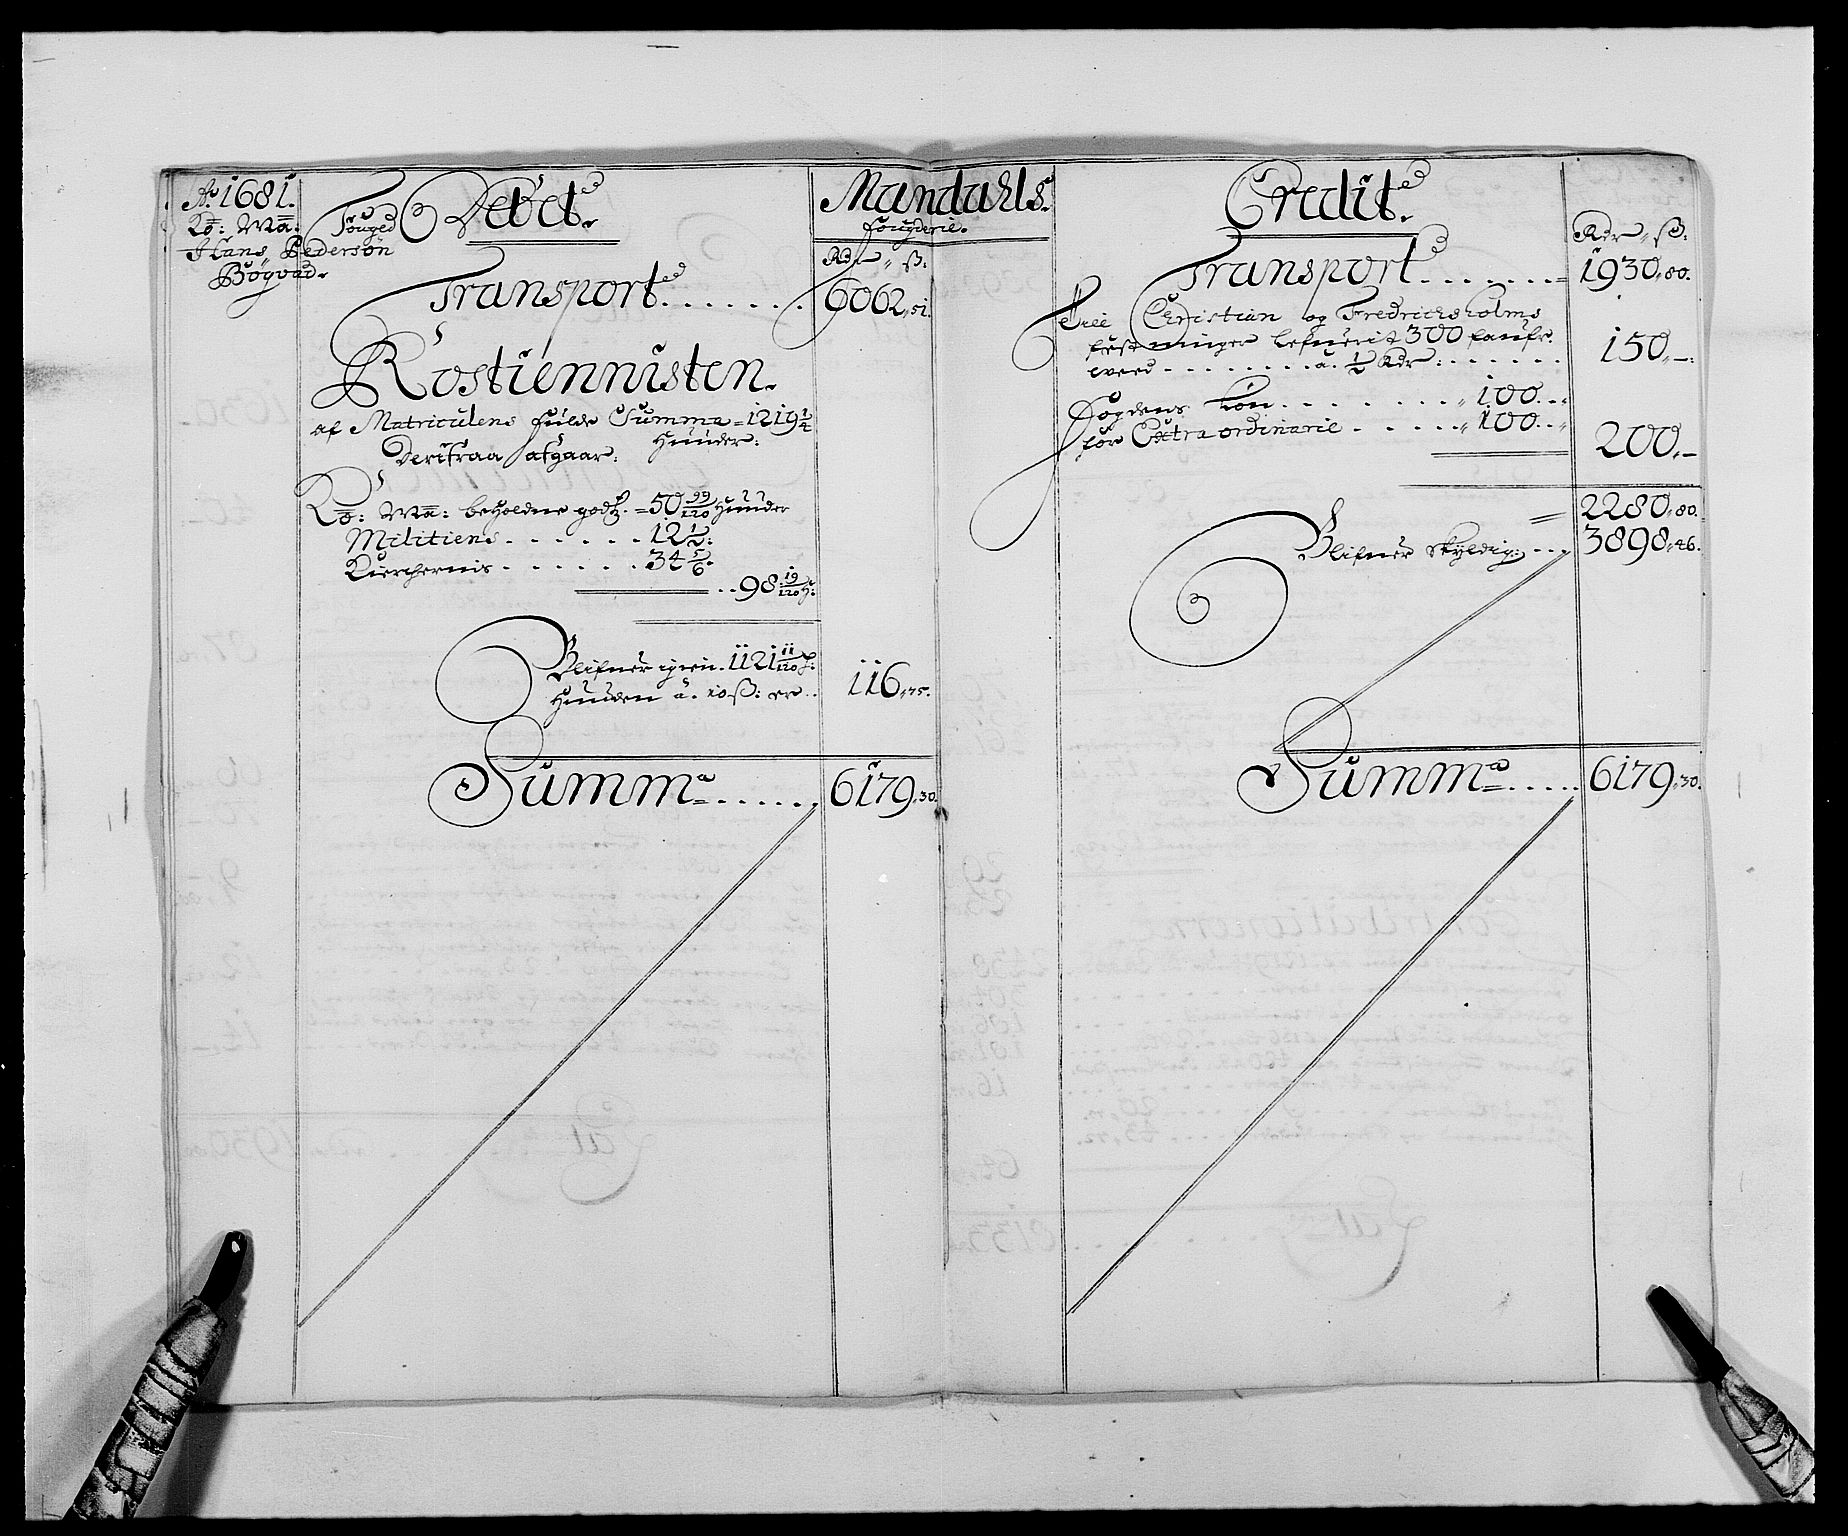 Ao 1681.
Ko: Ma: Fouged
Hans Pedersøn
Bögvad.
Debet.
Mandahls
fougderie.
Rdr „ ß:
Transport....... 6062„51.
Rostiennisten.
af Matriculens fulde Summa = 1219 1/4
Hunder:
Derifraa afgaar:
Ko: Ma: beholdne godtz = 50 99/120 Hunder
Militiens...... 12 1/2:
Kierchernis...... 34 5/6.
..98 19/120 H:
Blifuer igien. 1121 11/120 H:
Hunden a. 10 ß: er.. 116„75.
Summa...... 6179„30.
Credit.
Rdr „ ß:
Transport....... 1930„80.
Christian og Fredrichsholms
festninger lefuerit 300 faufr.
weed........ a. 1/2 Rdr:...... 150„—:
fogdens Lön........ „100..„
for Extra ordinarie..... „100..„
200„—
2280„80.
Blifuer skyldig:... 3898„46.
Summa..... 6179„30.